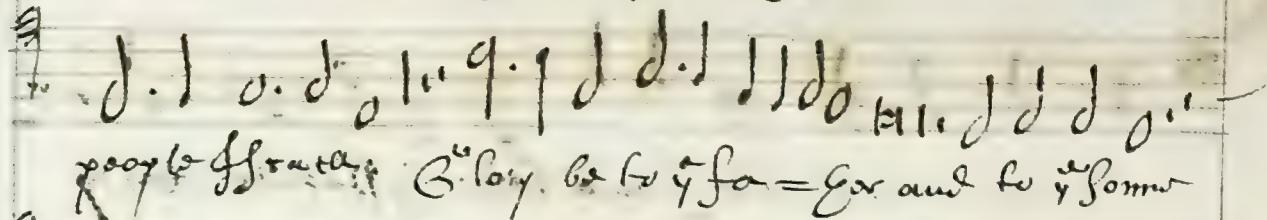 people Israell. Glory be to yͤ fa = ther and to yͤ sonne